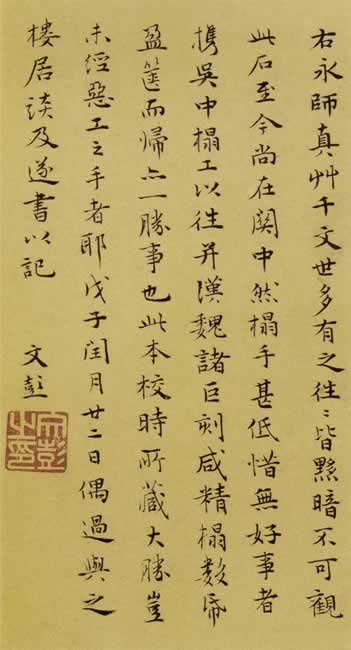 右永師真艸千文世多有之往〻皆黟暗不可觀
此石至今尚在関中然榻手甚低惜無好事者
携吳中榻工以往并漢魏諸巨刻咸精榻数帋
盈篋而歸亦一勝事也此本校時所藏大勝豈
未經惡工之手者耶戊子闰月廿二日偶過與之
樓居談及遂書以記 文彭
文彭之印